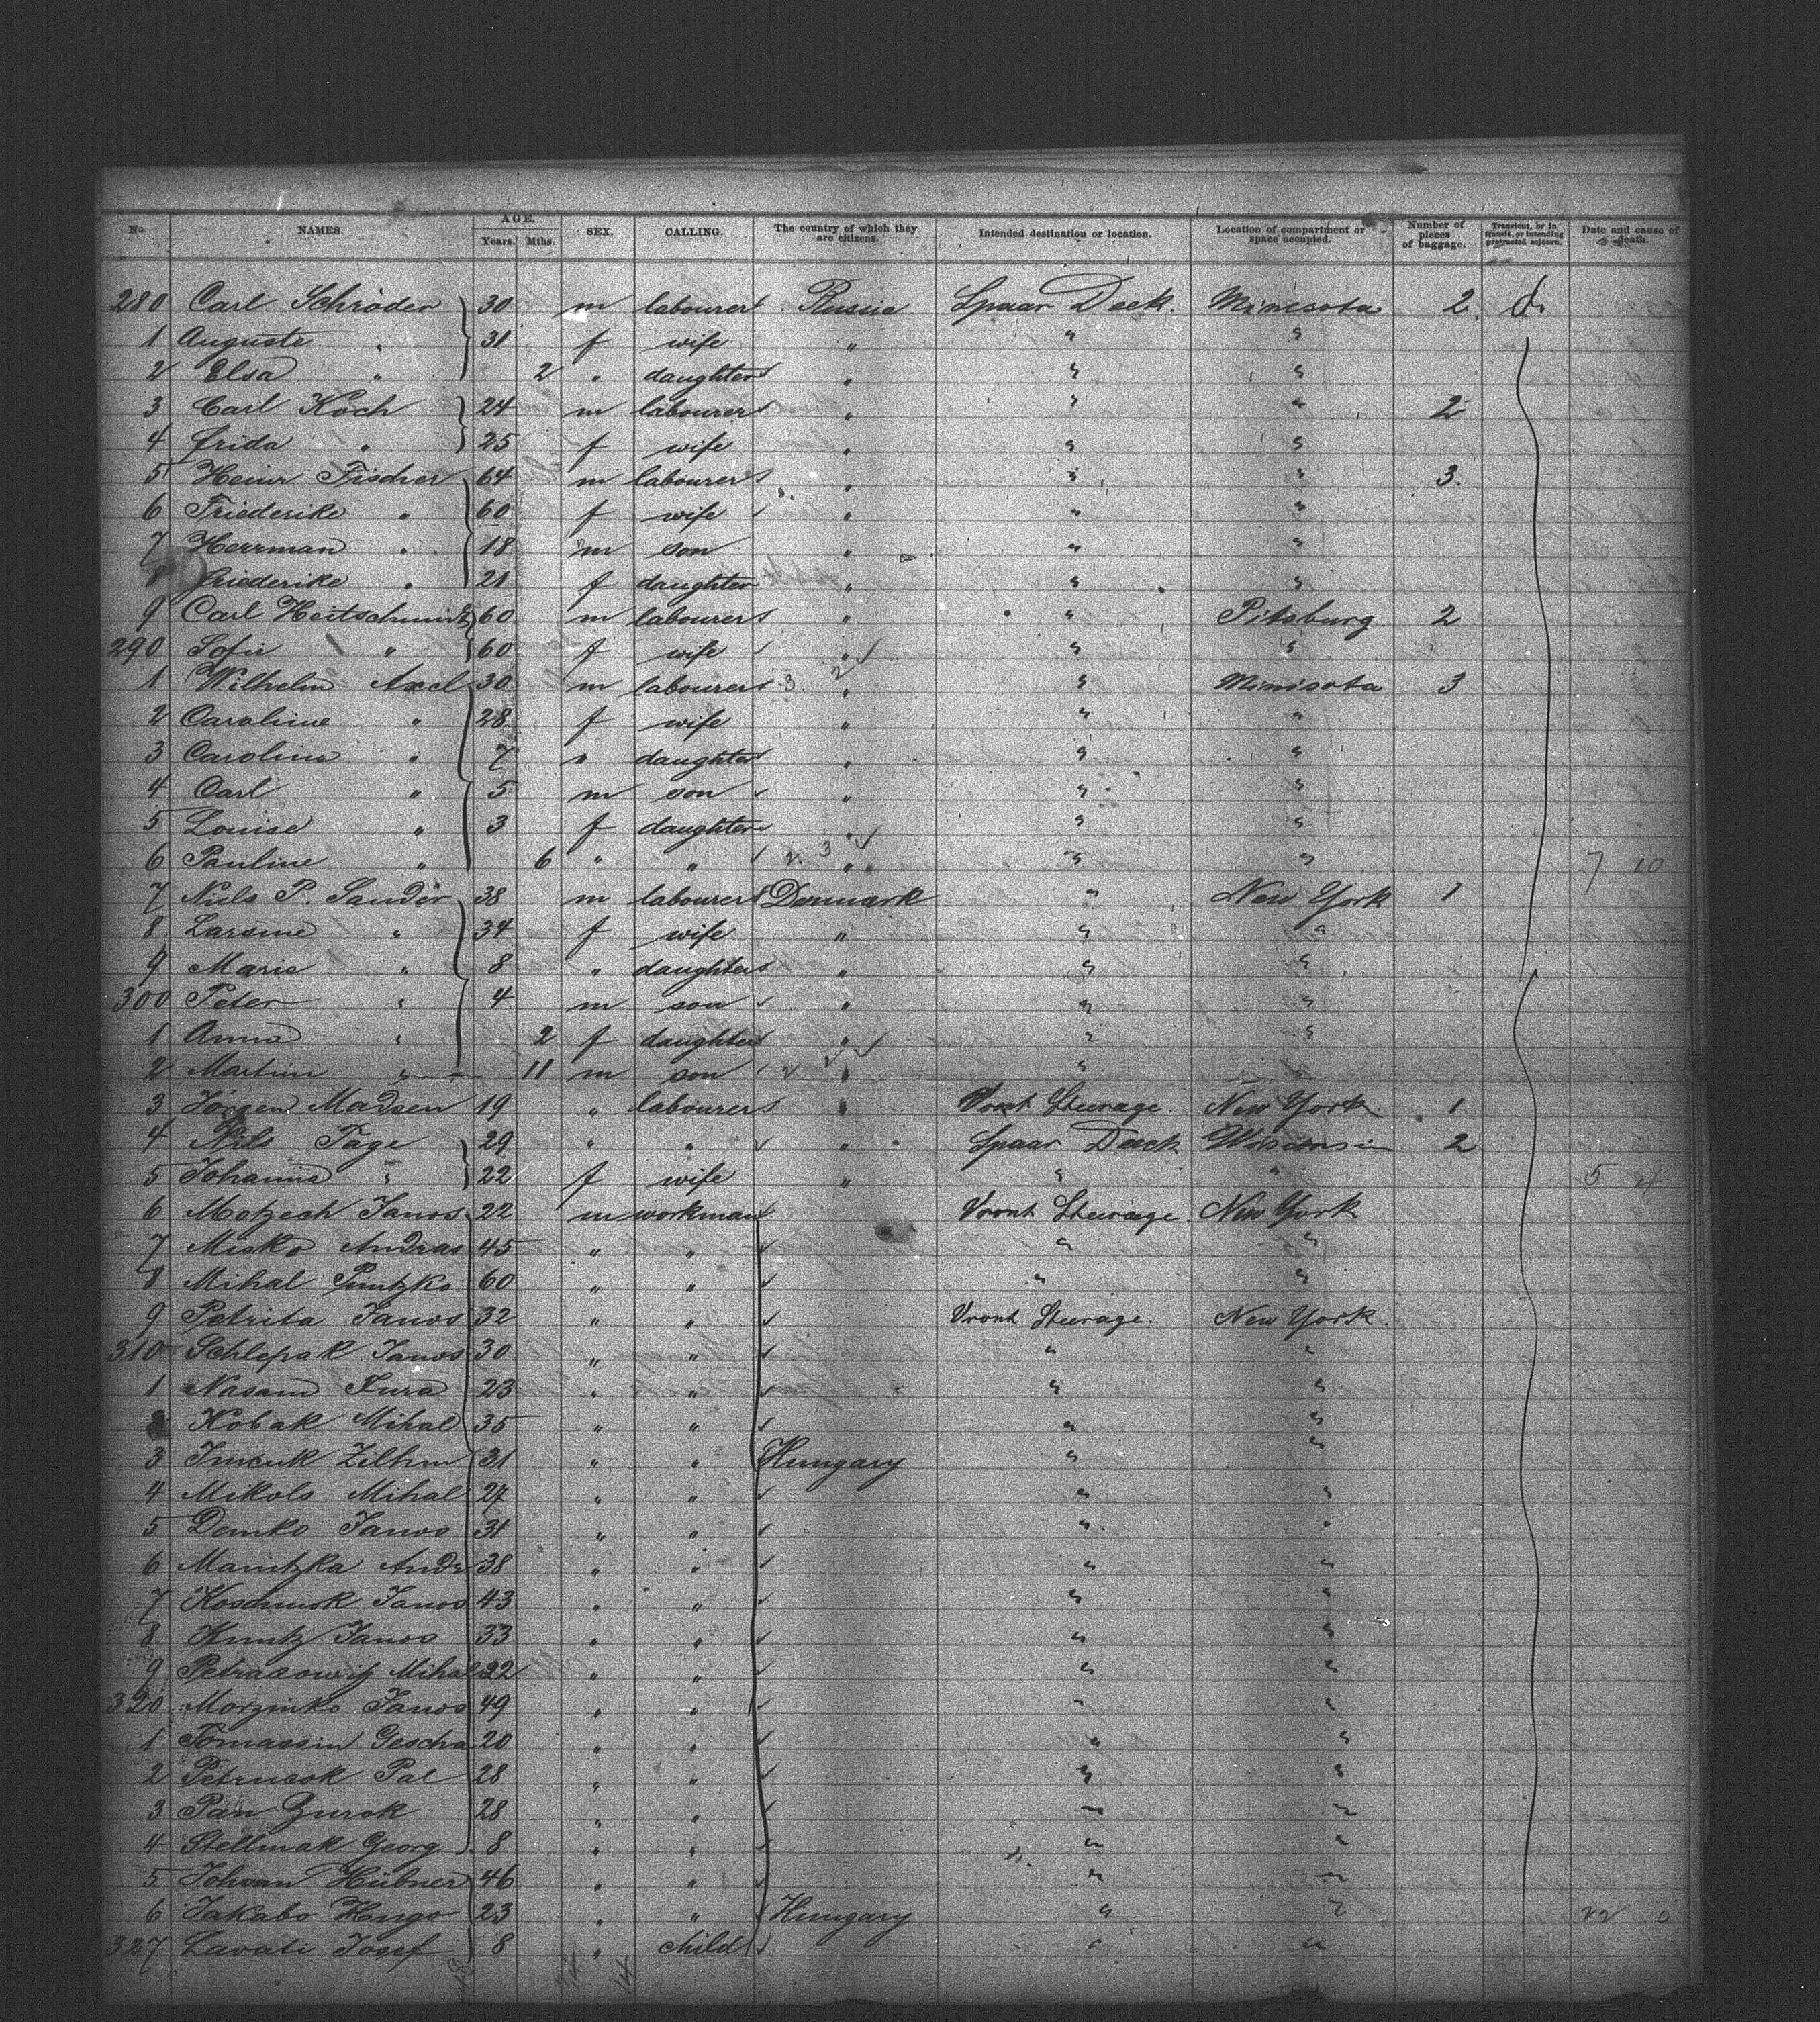 No. NAMES. AGE. Years. Mths. SEX. CALLING. The country of which they are citizens. Intended destination or location. Location of compartment or space occupied. Number of pieces of baggage. Transient, or in transit, or intending protracted sojourn. Date and cause of death.
280 Carl Schröder 30 m labourer Russia Spaar Deck. Minesota 2.
1 Auguste " 31 f wife " " "
2 Elsa " 2 " daughter " " "
3 Carl Koch 24 m labourer " " " 2
4 Frida " 25 f wife " " "
5 Heinr Fischer 64 m labourer " " " 3.
6 Friederike " 60 f wife " " "
7 Herrman " 18 m son " " "
8 Friederike " 21 f daughter " " "
9 Carl Heitschmidt 60 m labourer " " Pitsburg 2
290 Sofie " 60 f wife " " "
1 Wilhelm Axel 30 m labourer " " Minisota 3
2 Caroline " 28 f wife " " "
3 Carolina " 7 " daughter " " "
4 Carl " 5 m son " " "
5 Louise " 3 f daughter " " "
6 Pauline " 6 " " " " " 7 10
7 Niels P. Sander 38 m labourer Denmark " New York 1
8 Larsine " 34 f wife " " "
9 Marie " 8 " daughter " " "
300 Peter " 4 m son " " "
1 Anna " 2 f daughter " " "
2 Martin " 11 m son " " "
3 Jörgen Madsen 19 " labourer " Vront Steerage. New York 1
4 Nils Tage 29 " " " Spaar Deck Wisconsin 2
5 Johanna " 22 f wife " " " 5 4
6 Motzech Janos 22 m workman Vront Steerage. New York
7 Misko Andras 45 " " " "
8 Mihal Puntzko 60 " " " "
9 Petrita Janos 32 " " Vront Steerage. New York.
310 Schlepak Janos 30 " " " "
1 Nasam Jura 23 " " " "
2 Kobak Mihal 35 " " " "
3 Zilhm 31 " " Hungary " "
4 Mikols Mihal 27 " " " "
5 Demko Janos 31 " " " "
6 Manitzka Andr 38 " " " "
7 Janos 43 " " " "
8 Kuntz Janos 33 " " " "
9 Petrasowitz Mihal 22 " " " "
320 Morzinko Janos 49 " " " "
1 Tomassin Gescha 20 " " " "
2 Petrucok Pal 28 " " " "
3 Pan Zurok 28 " " " "
4 Stellmak Georg 8 " " " "
5 Johann Hübner 46 " " " "
6 Jakabo Hugo 23 " " Hungary " " 22 0
327 Zavati Josef 8 " child " "